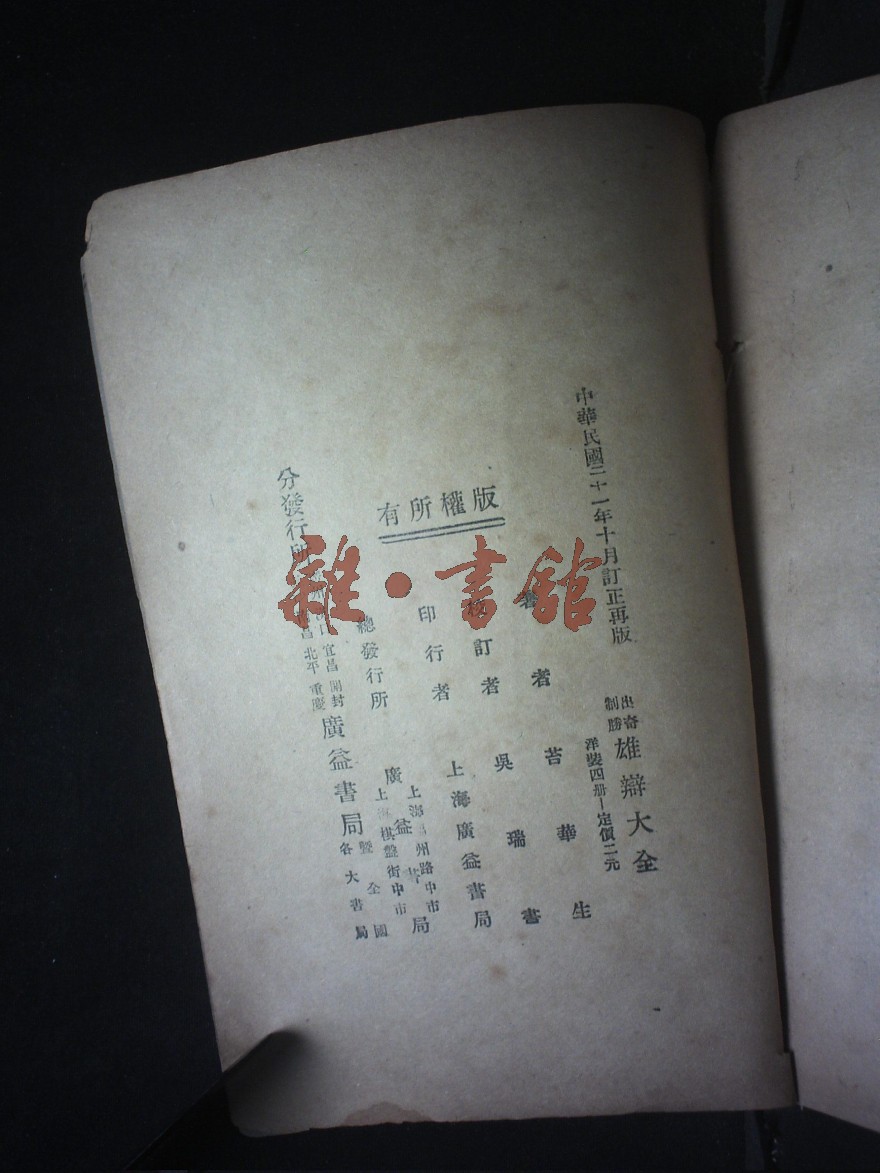 中華民國二十一年十月訂正再版
出奇制勝 雄辯大全
洋裝四册 定價二元
版權所有
著者 苔華生
訂者 吳瑞書
印行者 上海廣益書局
總發行所 廣益書局
上海 州路中市
上海棋盤街中市
分發行所
宜昌 開封
北平 重慶
廣益書局
暨全國
各大書局
雜·書館